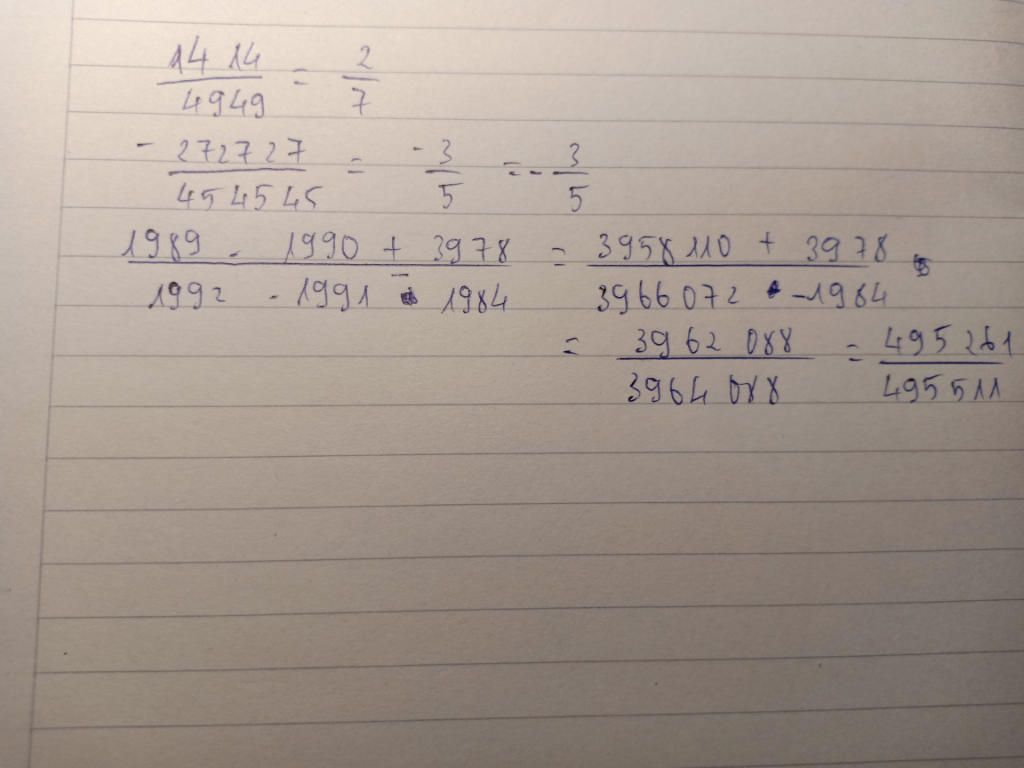 1414/4949 = 2/7
- 272727/454545 = -3/5 = - 3/5
1989 . 1990 + 3978 / 1992 . 1991 - 1984 = 3958110 + 3978 / 3966072 - 1984
= 3962088/3964088 = 495261/495511